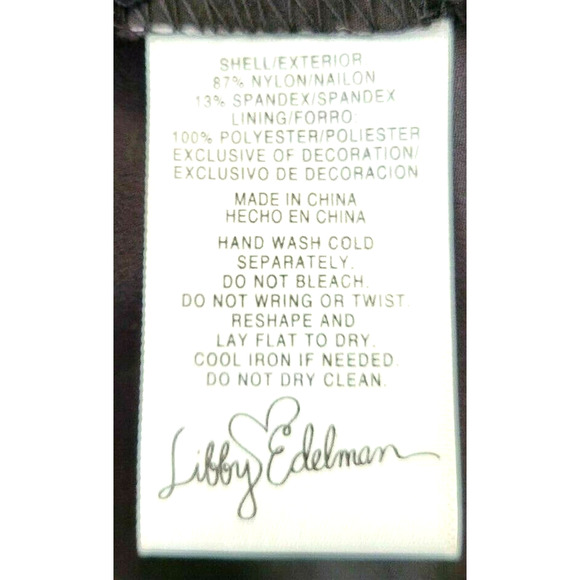 SHELL/EXTERIOR
87% NYLON/NAILON
13% SPANDEX/SPANDEX
LINING/FORRO:
100% POLYESTER/POLIESTER
EXCLUSIVE OF DECORATION/
EXCLUSIVO DE DECORACION
MADE IN CHINA
HECHO EN CHINA
HAND WASH COLD
SEPARATELY.
DO NOT BLEACH.
DO NOT WRING OR TWIST.
RESHAPE AND
LAY FLAT TO DRY.
COOL IRON IF NEEDED.
DO NOT DRY CLEAN.
Libby Edelman